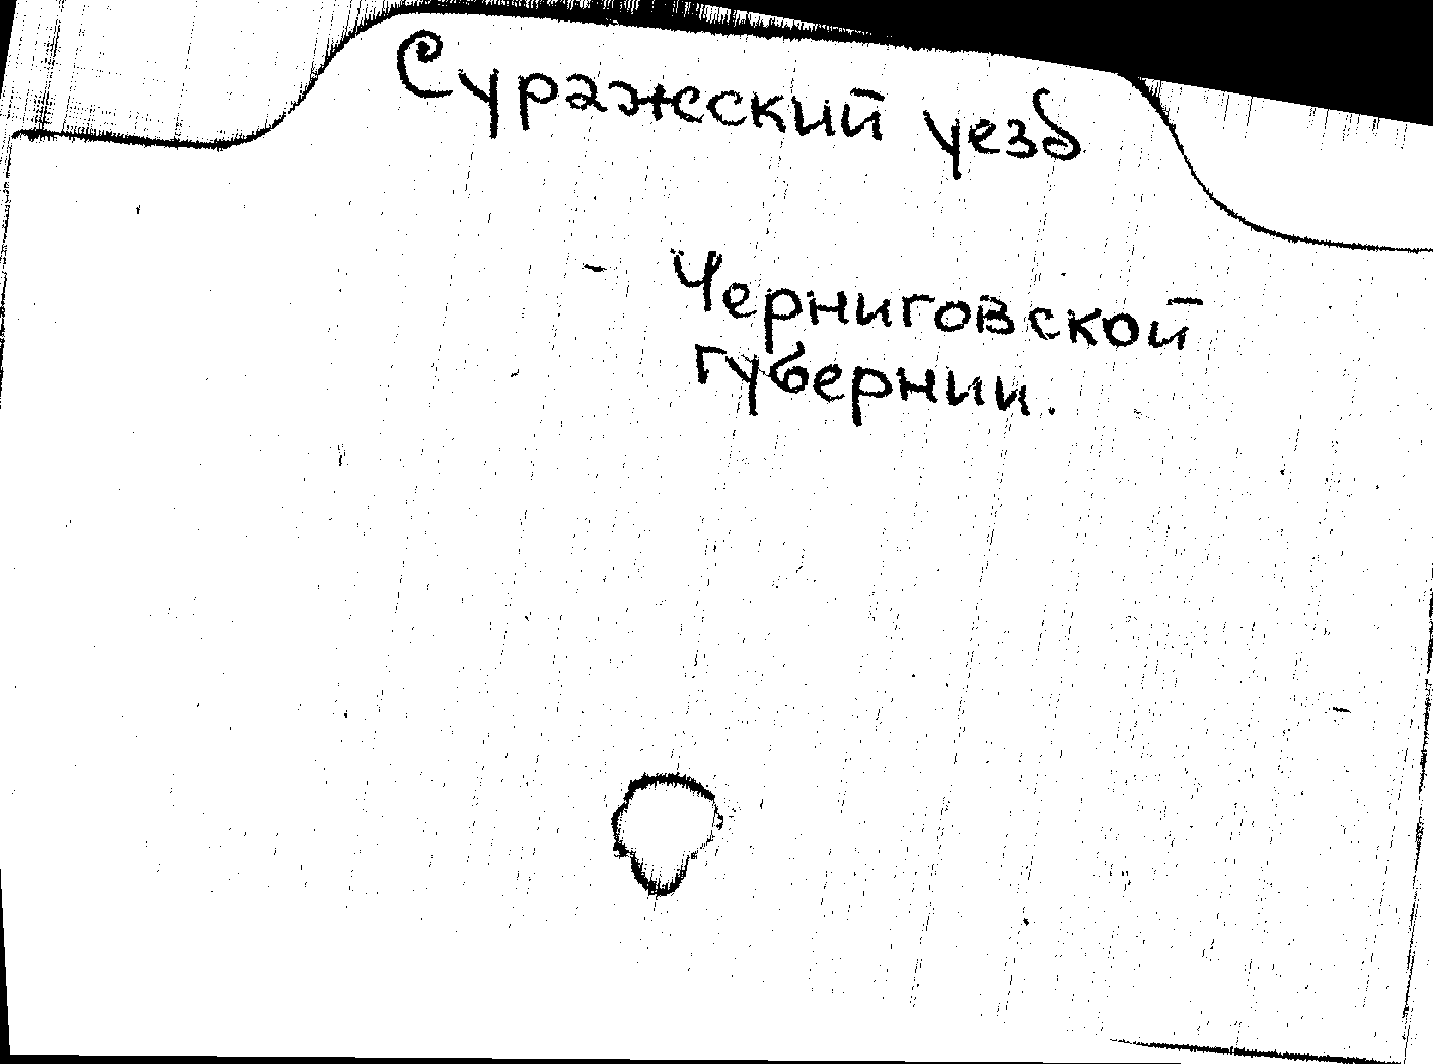 Суражский уезд
- Черниговской
губернии.